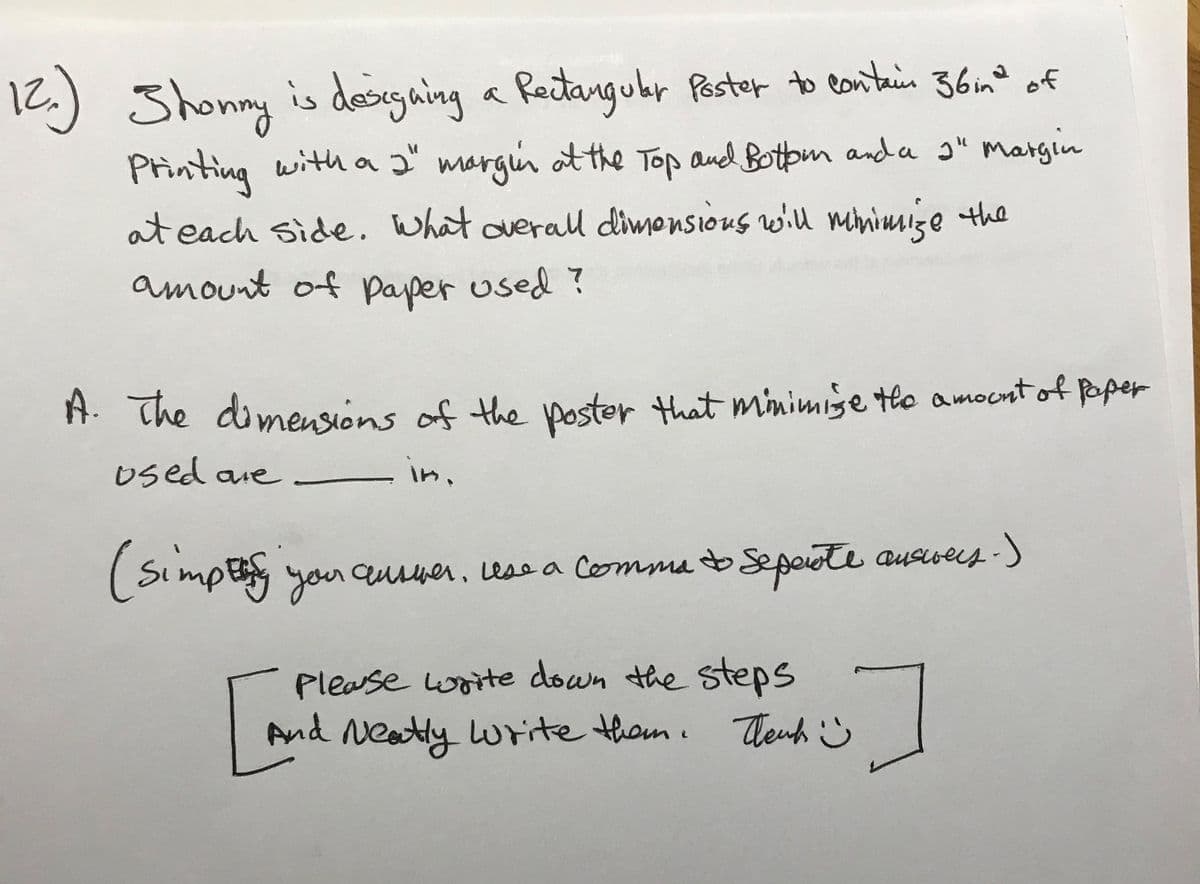 12.) Jhonny is designing a Rectangular Poster to contain 36in² of
Printing with a 2" margin at the Top and Bottom and a 2" margin
at each side. What overall dimensions will minimize the
amount of paper used ?
A. The dimensions of the poster that minimize the amount of Paper
used are ____ in.
(simplify your answer, use a Comma to Seperate answers.)
[Please write down the steps
And Neatly write them. :)]